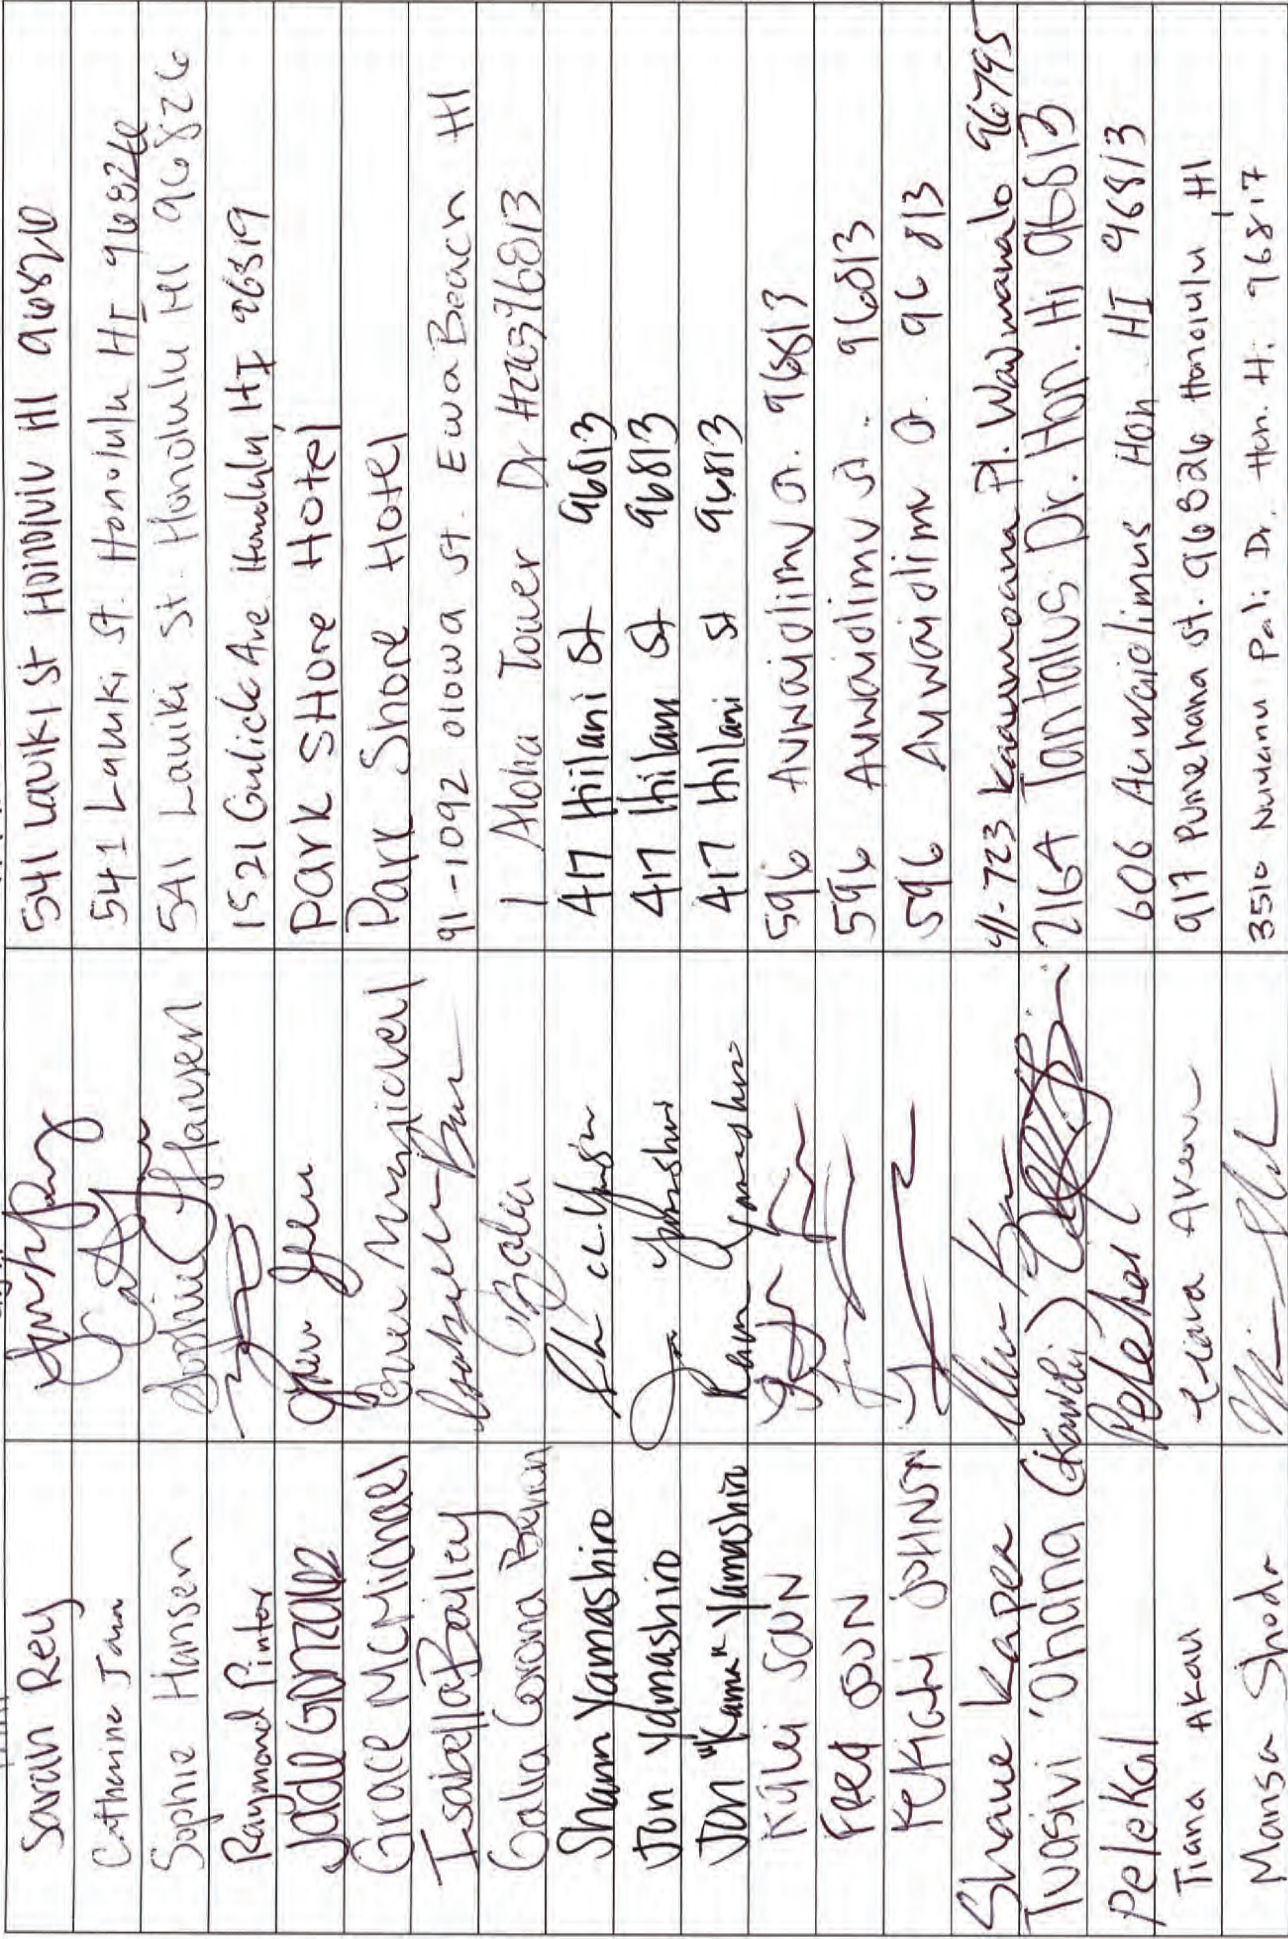 Sarah Rey 541 Lauiki St Honolulu HI 96826
Catherine 541 Lauiki St. Honolulu HI 96826
Sophie Hansen Sophie Hansen 541 Lauiki St. Honolulu HI 96826
Raymond Pintor 1521 Gulick Ave Honolulu, HI 96819
Jade Gonzalez Park Shore Hotel
Grace McMichael Grace McMichael Park Shore Hotel
Isabella Bailey 91-1092 Olowa St. Ewa Beach HI
Galia Corona 1 Aloha Tower Dr 96813
Sham Yamashiro 417 Hilani St 96813
Jon Yamashiro Jon Yamashiro 417 Hilani St 96813
Jon "Kama" Yamashiro Yamashiro 417 Hilani St 96813
Kalei SAUN 596 Auwaiolimu St. 96813
Fred 596 Auwaiolimu St. 96813
Keticohi JOHNSON 596 Auwaiolimu St. 96813
Shane Kapea 41-723 Pl. Waimanalo 96795
Tuasivi 'Ohana 2164 Tantalus Dr. Hon. Hi 96813
Pelekai Pelekai 606 Auwaiolimus Hon HI 96813
Tiana Akau Tiana Akau 917 Pumehana St. 96826 Honolulu, HI
3510 Nuuanu Pali Dr. Hon. Hi. 96817